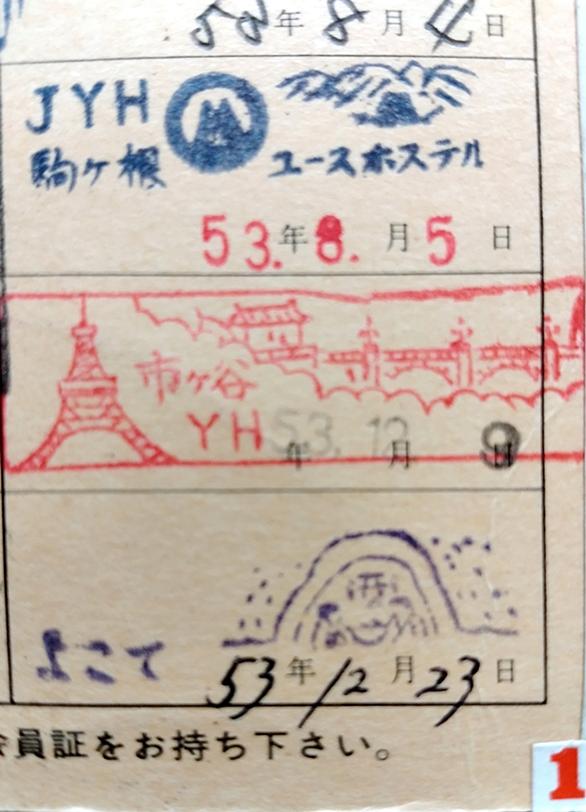 53年8月4日
JYH
駒ヶ根 ユースホステル
53.年8.月5日
市ヶ谷
YH 53.年12月9日
よこて
53年12月23日
会員証をお持ち下さい。
1